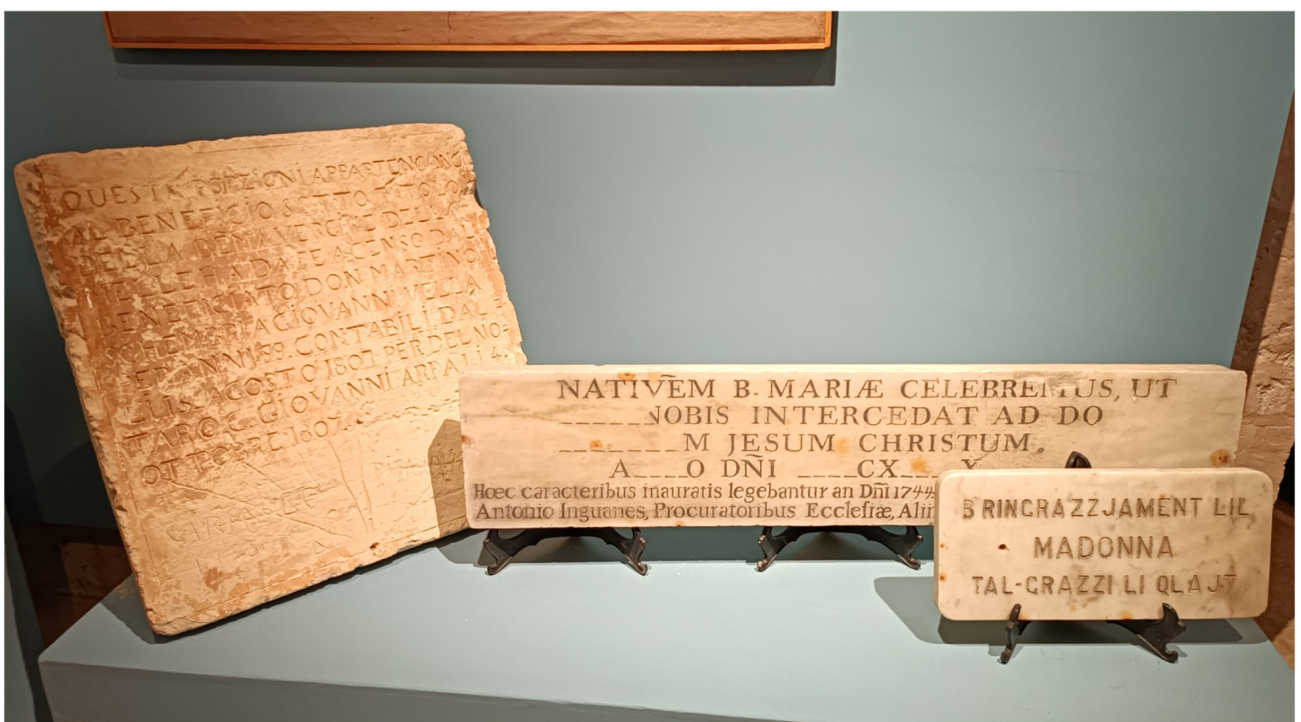 QUESTE PORZIONI APPARTENGONO
AL BENEFICIO SOTTO TITOLO
DELLA BENTA VERGINE DELLA
HA DATE A CENSO DAL
BENEFICIATO DON MARTINO
SCHEMBRI A GIOVANNI VELLA
PER ANNI 99. CONTABILI DAL
LI 15. AGOSTO 1807. PER DEL NO=
TARO C. GIOVANNI ARFALI 4.
OTTOBRE 1807.
NATIVĒM B. MARIÆ CELEBREMUS, UT
______NOBIS INTERCEDAT AD DO
________M JESUM CHRISTUM.
A____O DÑI ____CX____X
Hœc caracteribus inauratis legebantur an Dñi 1744
Antonio Inguanes, Procuratoribus Eccleſiæ, Alin
B'RINGRAZZJAMENT LIL
MADONNA
TAL-GRAZZI LI QLAJT